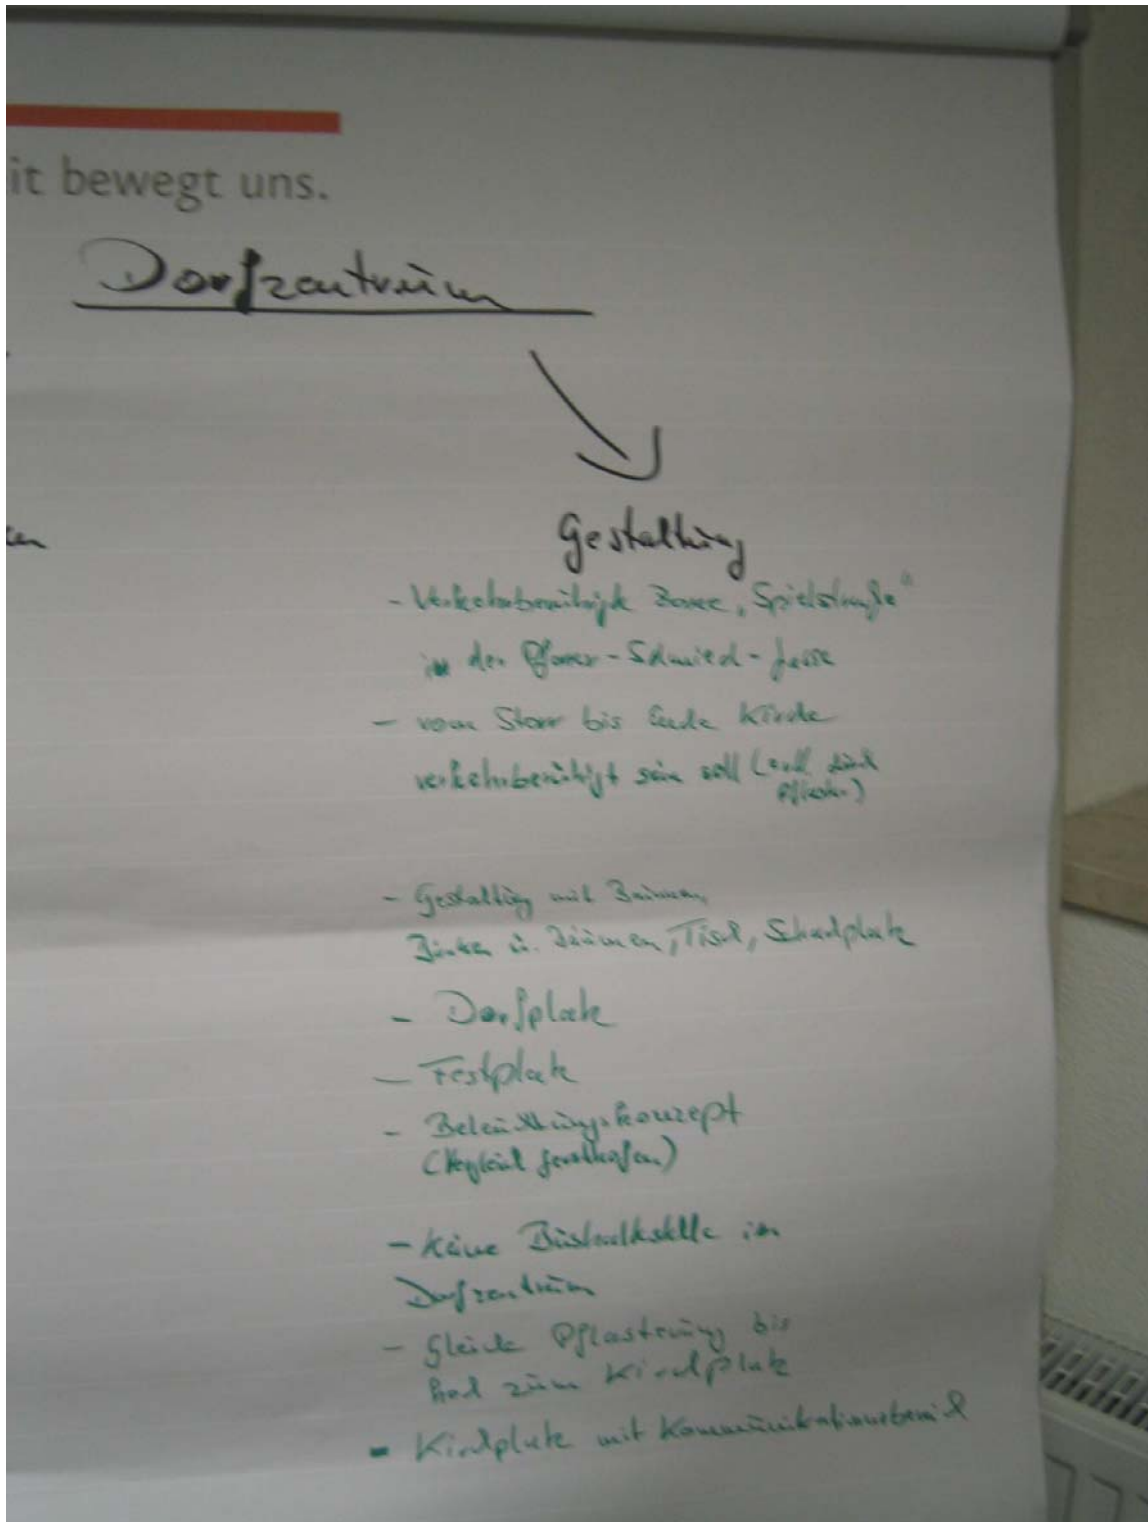 it bewegt uns.
Dorfzentrum
en
Gestaltung
- Verkehrsberuhigte Zone „Spielstraße"
in der Pfarrer-Schmied-Gasse
- vom Storr bis Ende Kirche
verkehrsberuhigt sein soll (evtl. durch
Pflaster)
- Gestaltung mit Brunnen,
Bänken u. Bäumen, Tisch, Schachplatz
- Dorfplatz
- Festplatz
- Beleuchtungskonzept
(Vergleich Gersthofen)
- Keine Bushaltestelle im
Dorfzentrum
- Gleiche Pflasterung bis
hoch zum Kirchplatz
- Kirchplatz mit Kommunikationsbereich